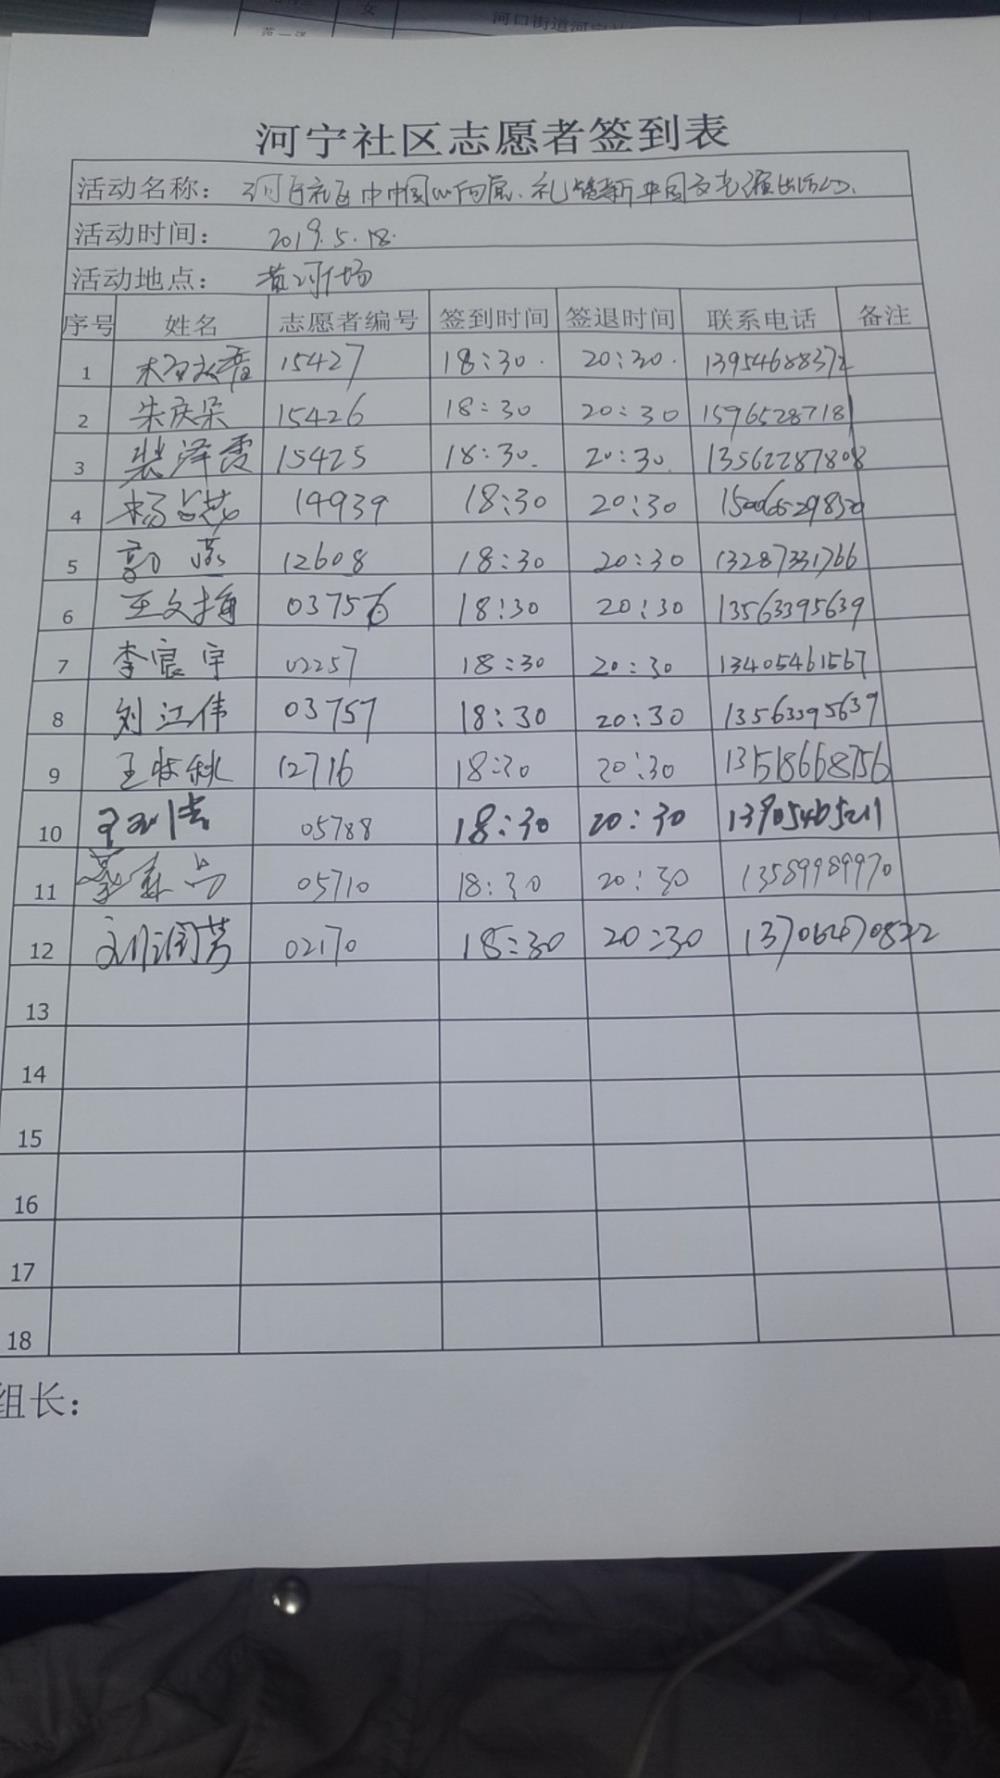 女
河口街道河宁社
河宁社区志愿者签到表
活动名称: 河宁社区
活动时间: 2019.5.18.
活动地点: 黄河广场
序号 姓名 志愿者编号 签到时间 签退时间 联系电话 备注
1 15427 18:30. 20:30. 1395468837
2 朱庆朵 15426 18:30 20:30 15965287181
3 裴泽霞 15425 18:30. 20:30. 13562287808
4 杨 14939 18:30 20:30
5 郭燕 12608 18:30 20:30 13287331766
6 王文 03756 18:30 20:30 13563395639
7 李宸宇 02257 18:30 20:30 13405461567
8 刘江伟 03757 18:30 20:30 13563395639
9 王 秋 12716 18:30 20:30 13518668756
10 王 05788 18:30 20:30 13905465211
11 05710 18:30 20:30 13589989970
12 刘润芳 02170 18:30 20:30 13706470822
13
14
15
16
17
18
组长: